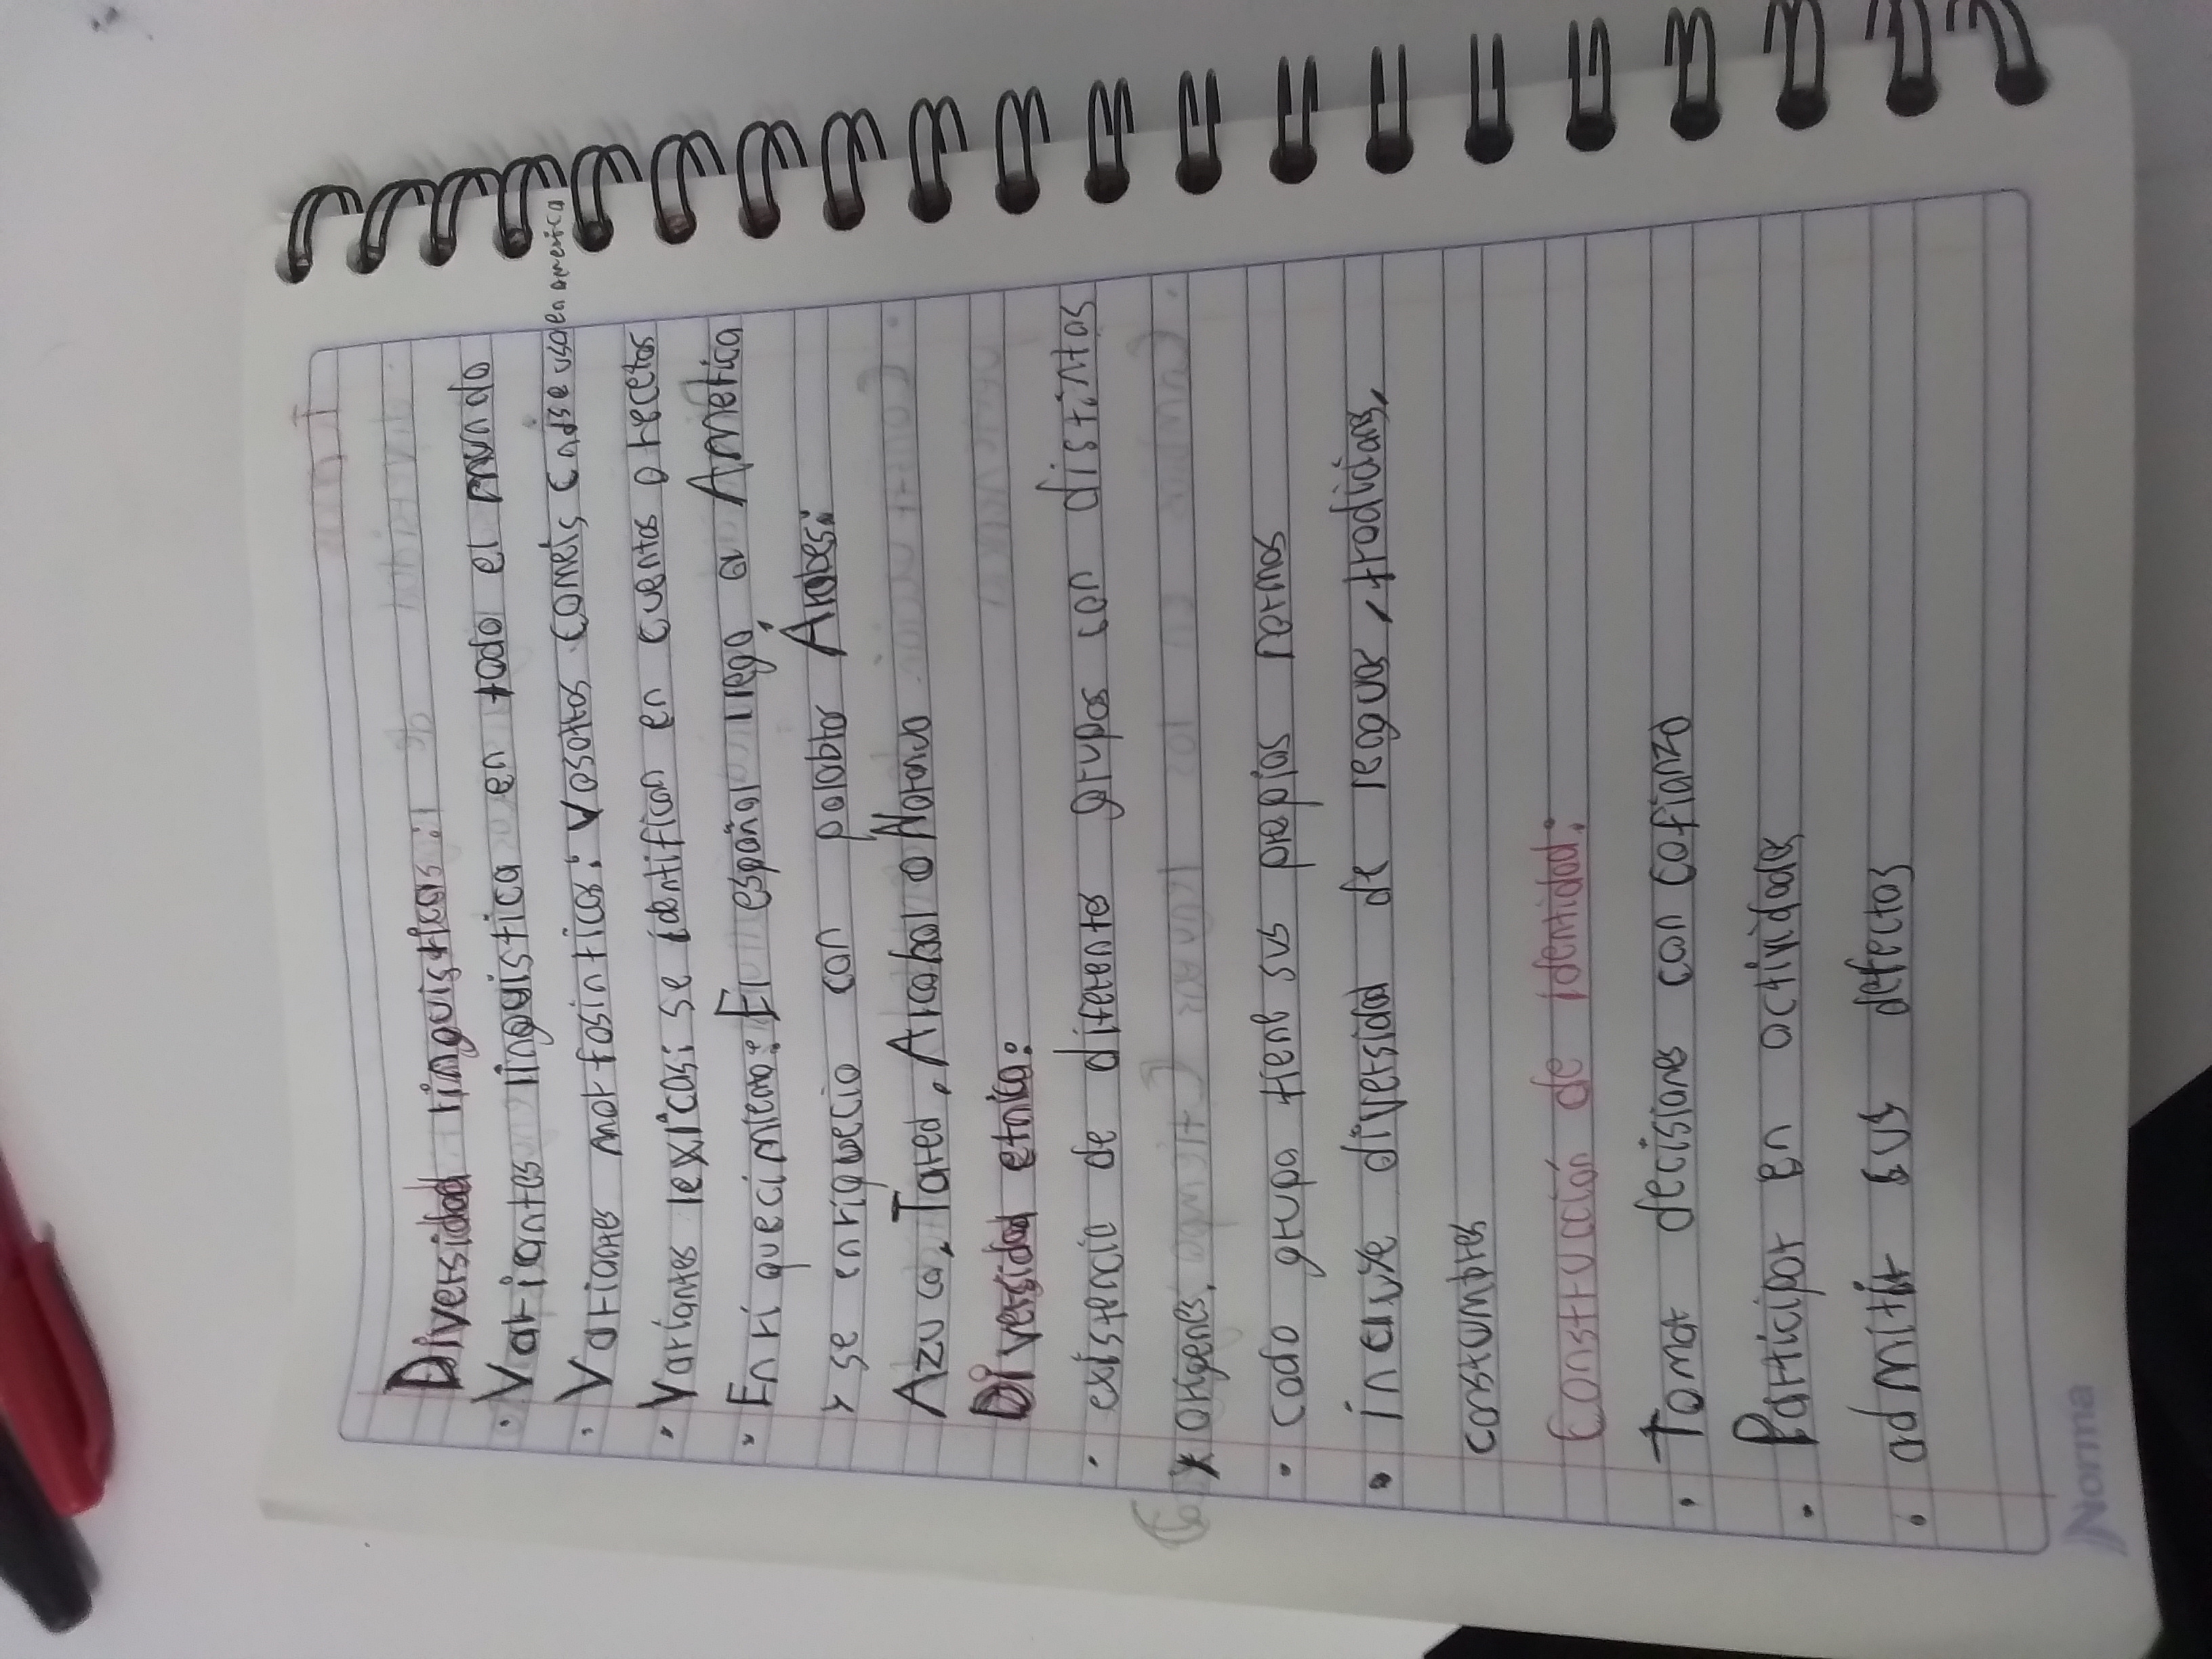 Diversidad linguisticas:
• Variantes linguistica en todo el mundo
• Variantes morfosintticas: Vosotros coméis, c no se usa en america
• Variantes lexicas: se identifican en cuentos o recetas
• Enriquecimiento: El español llegó a America
y se enriquecio con palabras Árabes:
Azucar, Tared, Arcabal o Naranja
Diversidad etnica:
• existencia de diferentes grupos con distintos
origenes.
• cada grupo tiene sus propias normas
• incluye diversidad de lenguas, tradicions,
constumbres
Construcción de identidad:
• Tomar decisiones con cofianza
• Participar en actividades
• admitir sus defectos
Norma